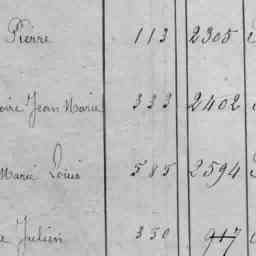 Pierre 113 2305
oire Jean Marie 333 2402
Marie Louis 585 2594
e Julien 350 917